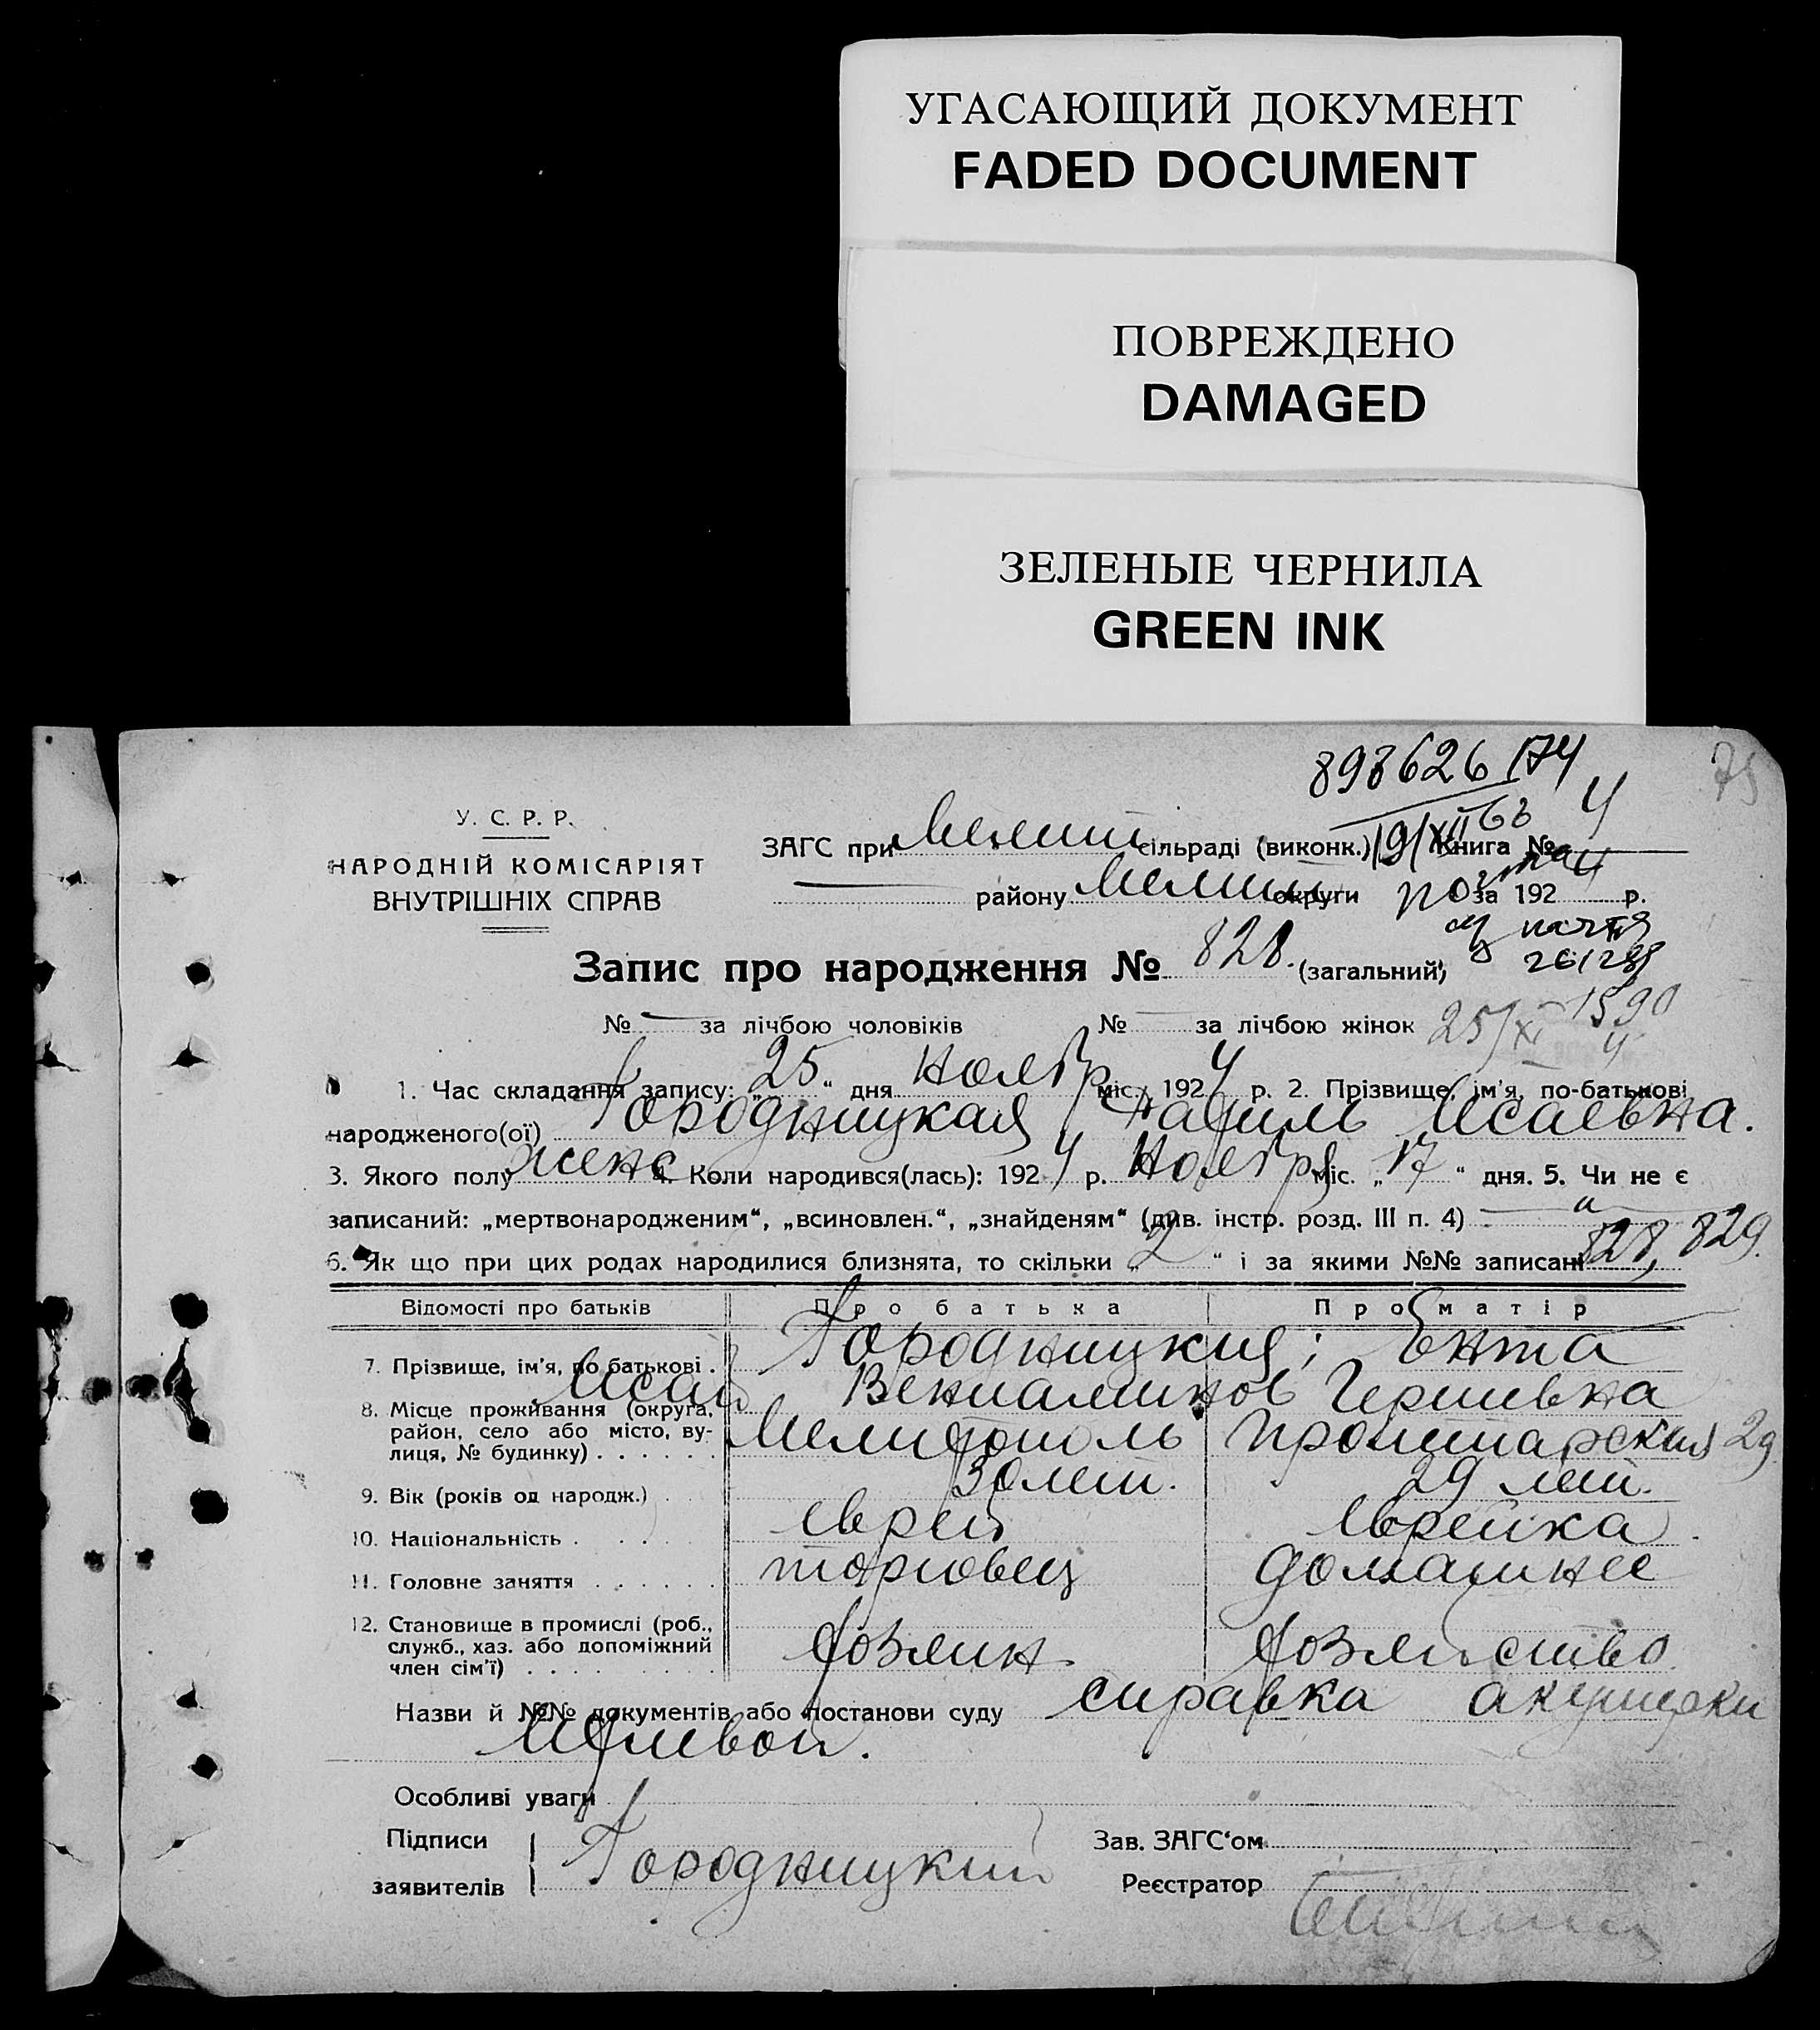 УГАСАЮЩИЙ ДОКУМЕНТ
FADED DOCUMENT
ПОВРЕЖДЕНО
DAMAGED
ЗЕЛЕНЫЕ ЧЕРНИЛА
GREEN INK
75
У. С. Р. Р.
НАРОДНІЙ КОМІСАРІЯТ
ВНУТРІШНІХ СПРАВ
ЗАГС при сільраді (виконк.) 19/XII 63 Книга № 4
району округи за 1924 р.
Запис про народження № 828. (загальний)
№ — за лічбою чоловіків № — за лічбою жінок 25/XI
1. Час складання запису: „25“ дня Ноябр міс. 1924 р. 2. Прізвище, ім'я, по-батькові
народженого(ої) Городницкая Исаевна.
3. Якого полу женс 4. Коли народився(лась): 1924 р. Ноября міс. „17“ дня. 5. Чи не є
записаний: „мертвонародженим“, „всиновлен.“, „знайденям“ (див. інстр. розд. III п. 4)
6. Як що при цих родах народилися близнята, то скільки „2“ і за якими №№ записані 828, 829.
Відомості про батьків Про батька Про матір
7. Прізвище, ім'я, по батькові . Городницкия; Ента
Исай Вениаминов Гершевна
8. Місце проживання (округа, район, село або місто, вулиця, № будинку) . . . . . . Мелитополь Пролитарская 29
9. Вік (років од народж.) . 30 лет. 29 лет.
10. Національність . . . . . еврей еврейка
11. Головне заняття . . . . . . торговец домашнее
12. Становище в промислі (роб., служб., хаз. або допоміжний член сім'ї) . . . . . . . . . хозяин хозяйство
Назви й №№ документів або постанови суду справка акушерки
Особливі уваги
Підписи
заявителів Городницкий
Зав. ЗАГС'ом
Реєстратор